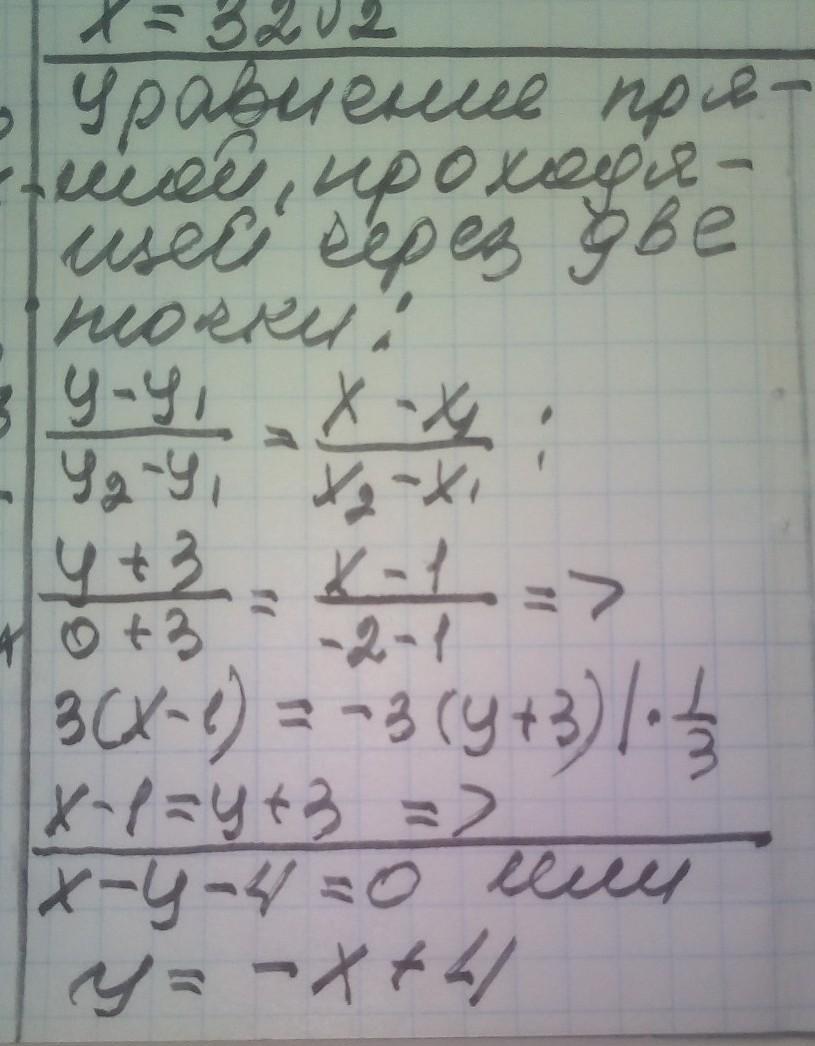 x = 32√2
Уравнение пря-
мой, проходя-
щей через две
точки:
(y - y₁)/(y₂ - y₁) = (x - x₁)/(x₂ - x₁) ;
(y + 3)/(0 + 3) = (x - 1)/(-2 - 1) =>
3(x - 1) = -3(y + 3) | · 1/3
x - 1 = y + 3 =>
x - y - 4 = 0 или
y = -x + 4